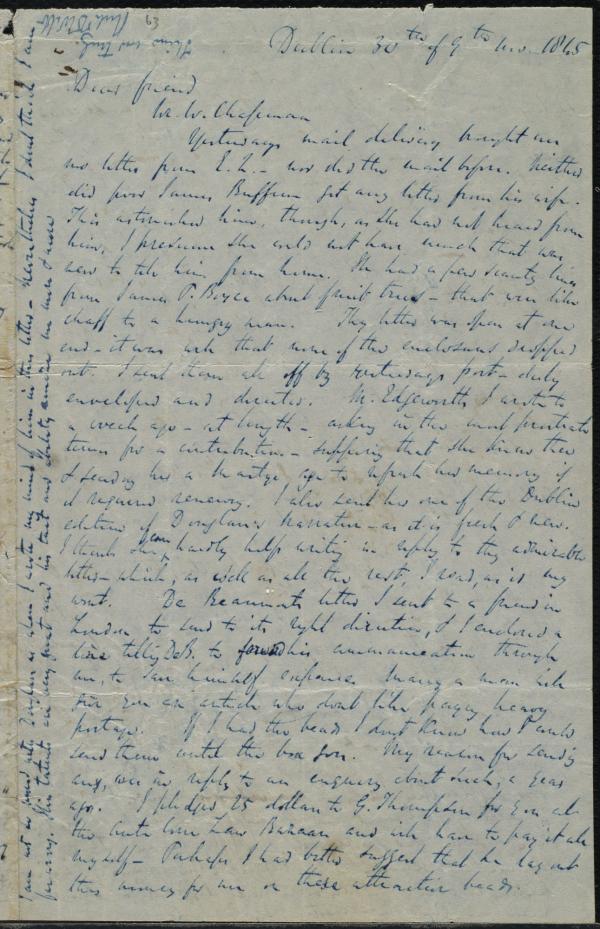 Dublin 30th of 9th mo. 1845
Dear friend
M. W. Chapman
Yesterdays mail delivery brought me
no letter from E. L. - nor did the mail before. Neither
did poor James Buffum get any letter from his wife.
This astonished him, though, as she had not heard from
him, I presume she could not have much that was
new to tell him from home. He had a few scanty lines
from James P. Boyce about fruit trees - that were like
chaff to a hungry man. Thy letter was open at one
end - it was well that none of the enclosures dropped
out. I sent them all off by yesterdays post - duly
enveloped and directed. M. Edgeworth I wrote to
a week ago - at length - asking in the most
terms for a contribution - supposing that she knew thee
& sending her a Martyr age to refresh her memory if
it required renewing. I also sent her one of the Dublin
edition of Douglass's Narrative - as it is fresh & new.
I think she can hardly help writing in reply to thy admirable
letter - which, as well as all the rest, I read, as is my
wont. De Beaumonts letter I sent to a friend in
London to send to its right direction, & I enclosed a
line telling DeB. to forward his communication through
me, to save himself expense. Many a man will
give you an article who dont like paying heavy
postage. If I had the beads I dont know how I could
send them until the box goes. My reason for sending
any, was in reply to an enquiry about such, a year
ago. I pledged 25 dollars to G. Thompson for you at
the Anti Corn Law Bazaar and will have to pay it all
myself - Perhaps I had better suggest that he lay out
this money for me on these attractive beads.
I am not as mad with Douglass as when I wrote my mind of him in this letter - nevertheless I dont think I am
far wrong. His talents are very great and his tact and ability amaze me more & more
Thine ever truly
Richd D Webb
63